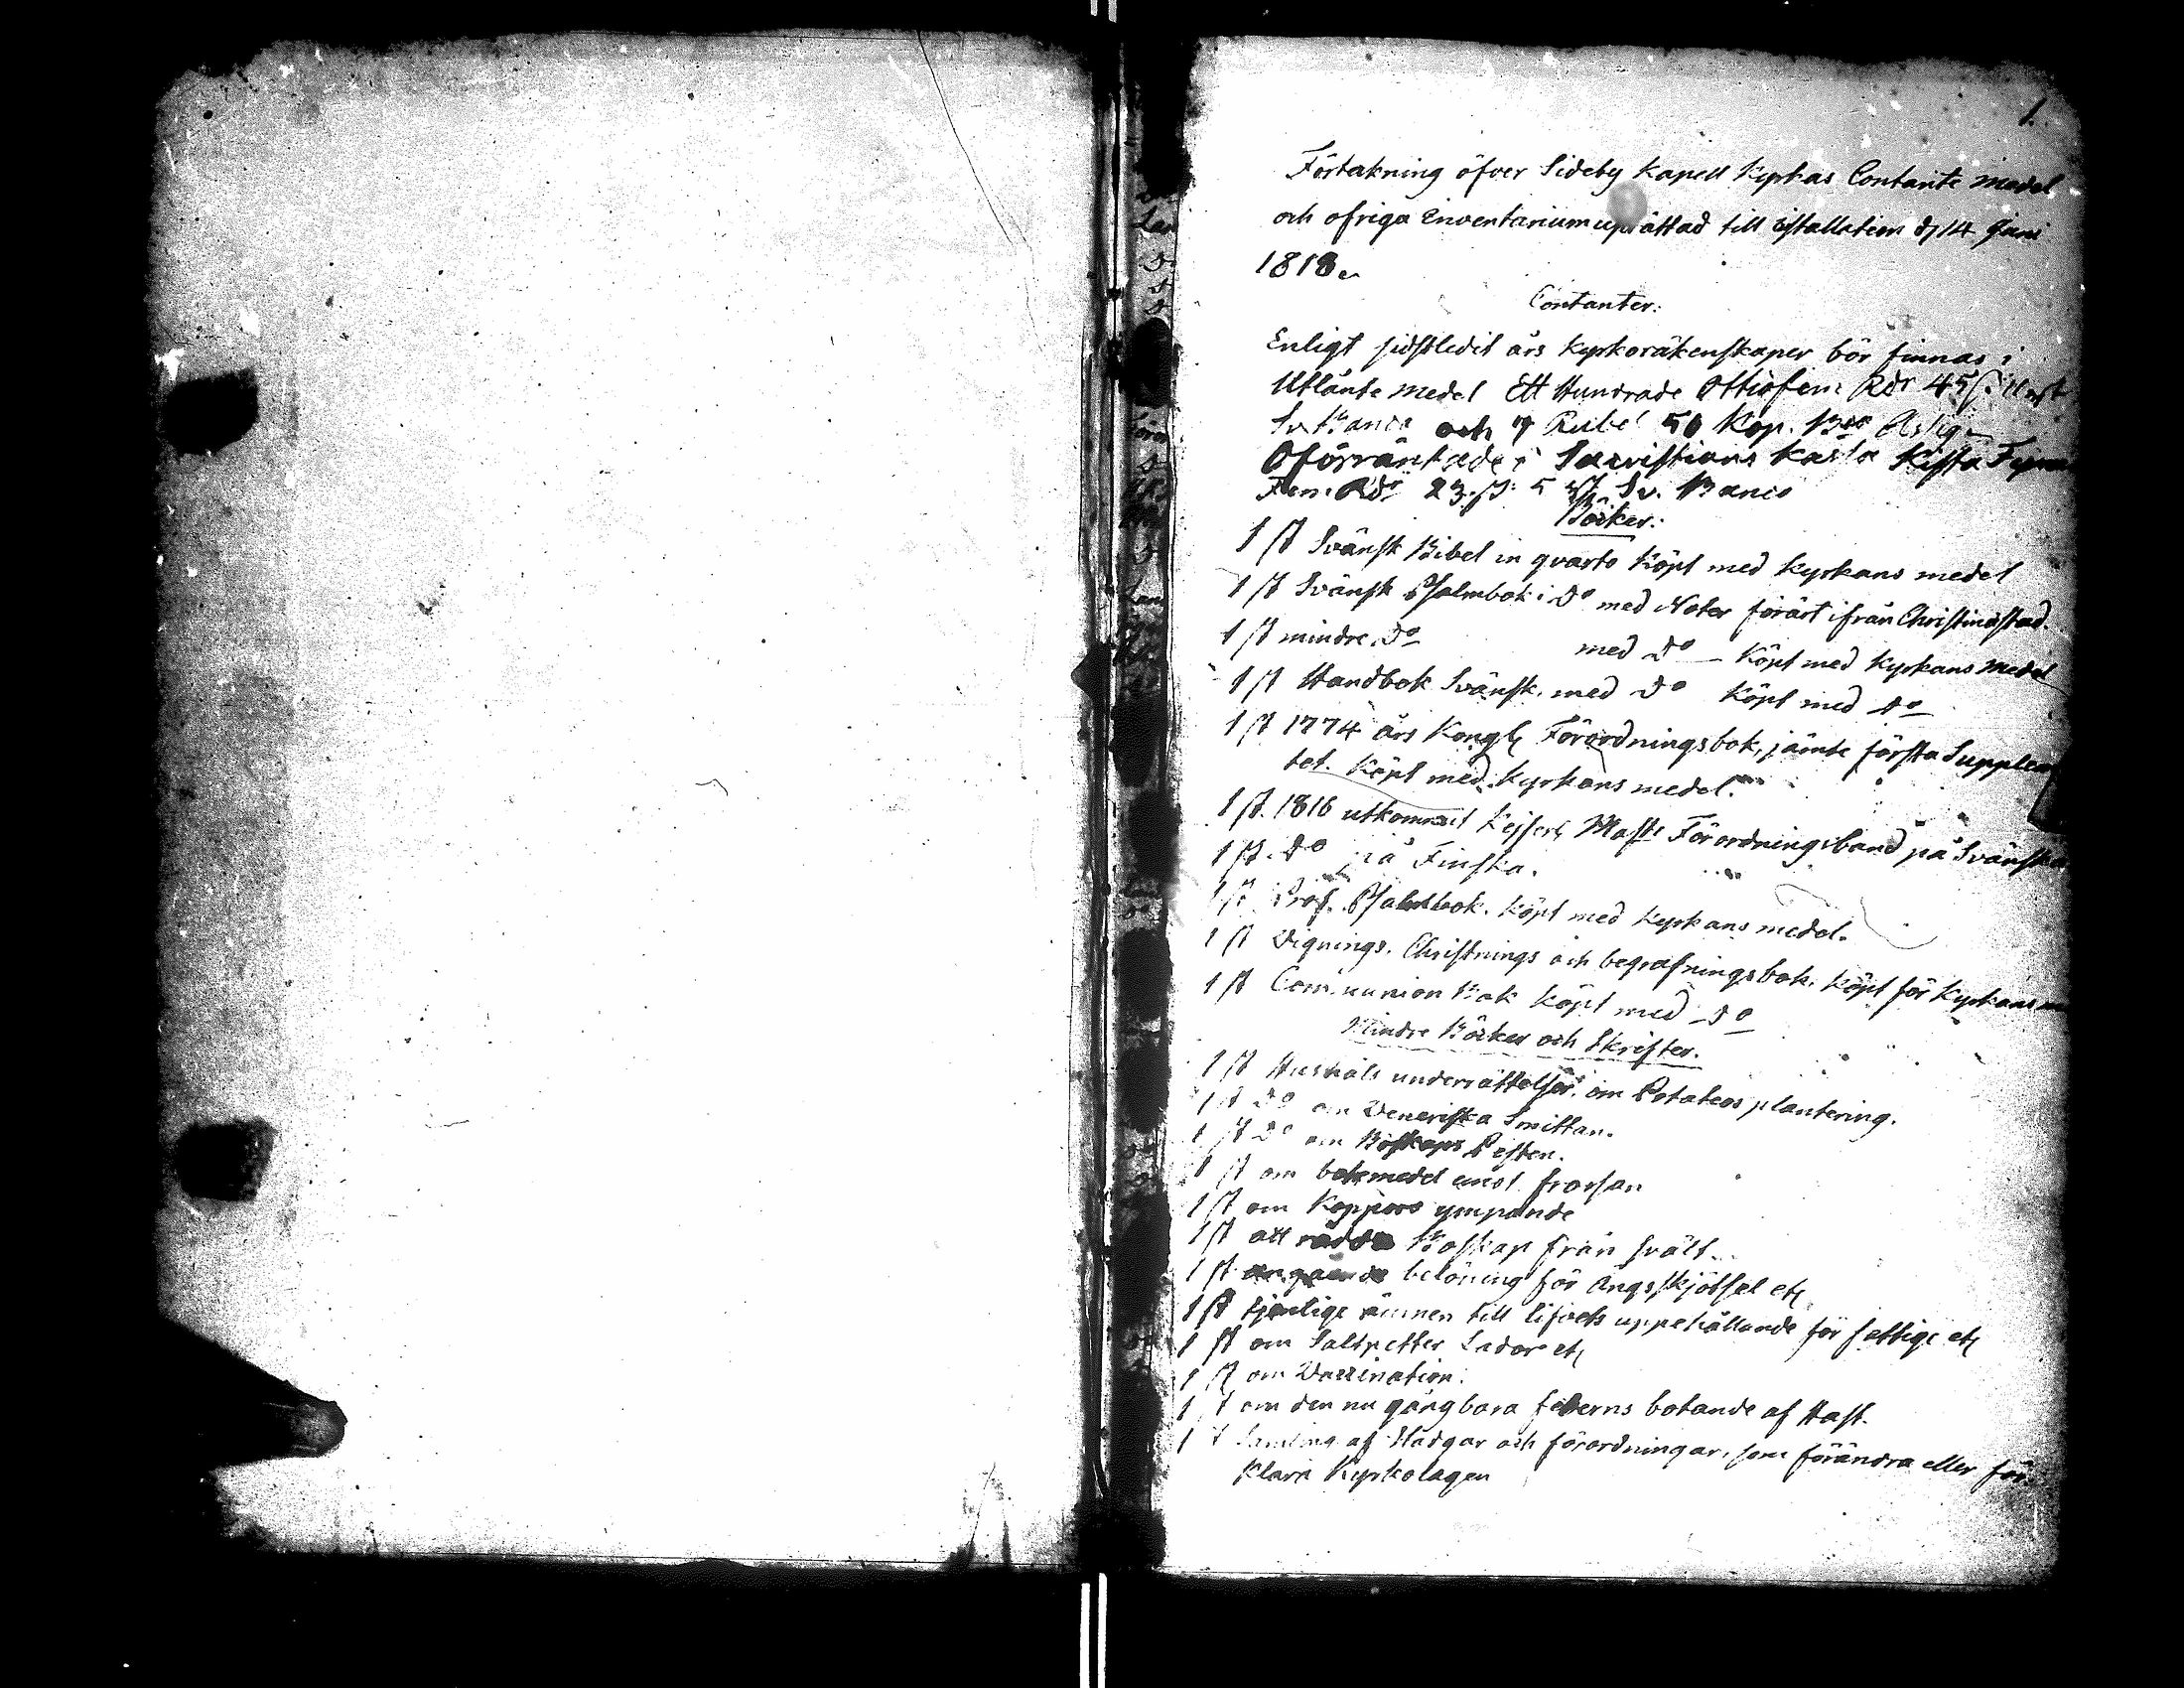 1.
Förtekning öfver Sideby Kapell Kyrkas Contante medel
och öfriga Inventarium uprättad till istallation d 14 Juni
1818.
Contanter:
Enligt sidstledit års Kyrkoräkenskaper bör finnas i
Utlånte medel Ett Hundrade Ottiofem Rdr 45 s.
Sv. Banco och 7 Rubel 50 Kop. Bco
Oförräntade i Sacristians Kassa Kista
Fem Rdr 23 s. 5 Sv. Banco
Böcker:
1 st Svänsk Bibel in qvarto Köpt med Kyrkans medel
1 st Svänsk Psalmbok i do med Noter förärt ifrån Christinästad.
1 st mindre do med do Köpt med Kyrkans medel
1 st Handbok Svänsk. med do Köpt med do
1 st 1774 års Kongl Förordningsbok, jämte första Supplem
tet. Köpt med Kyrkans medel.
1 st. 1816 utkommit Kejserl Mast Förordningsband på Svänska
1 st. do på Finska.
1 st Psalmbok. Köpt med Kyrkans medel.
1 st Vignings. Christnings och begrafningsbok. Köpt för Kyrkans
1 st Communion Bok Köpt med do
Mindre Böcker och Skrifter.
1 st Hushåls underrättelser, om Potateos plantering.
1 st do om Veneriska Smittan.
1 st do om Boskaps Pesten.
1 st om botemedel emot frossan
1 st om Koppors ympande
1 st att rädda Boskap från svält.
1 st angående belöning för Ängsskjötsel etc
1 st tjenlige ämnen till lifvets uppehållande för fattige etc
1 st om Saltpetter Lador etc
1 st om Vaccination.
1 st om den nu gångbara feberns botande af Hast.
1 st Samling af Stadgar och förordningar, som förändra eller för
klara Kyrkolagen